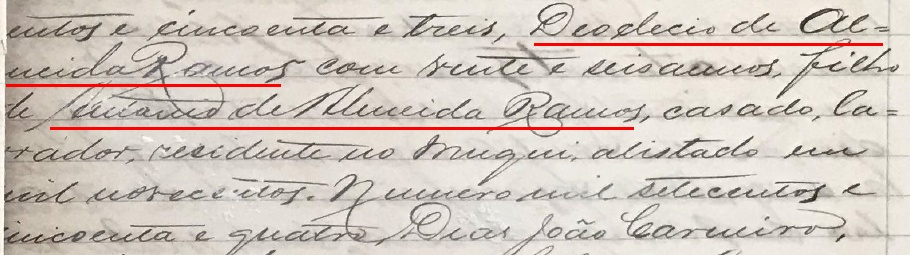 entos e cincoenta e treis, Deoclecio de Al=
meida Ramos com vinte e seis annos, filho
de de Almeida Ramos, casado, la=
rador, residente no Muqui, alistado em
mil novecentos. Numero mil setecentos e
cincoenta e quatro, Dias João Carneiro,